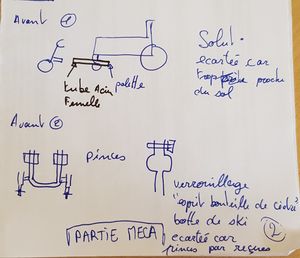 Avant 1
Solut.
écartée car
trop proche
du sol
tube Acier
Femelle
palette
Avant 2
pinces
verrouillage
"esprit bouteille de cidre"
botte de ski
écartée car
pinces pas reçues
PARTIE MECA
2